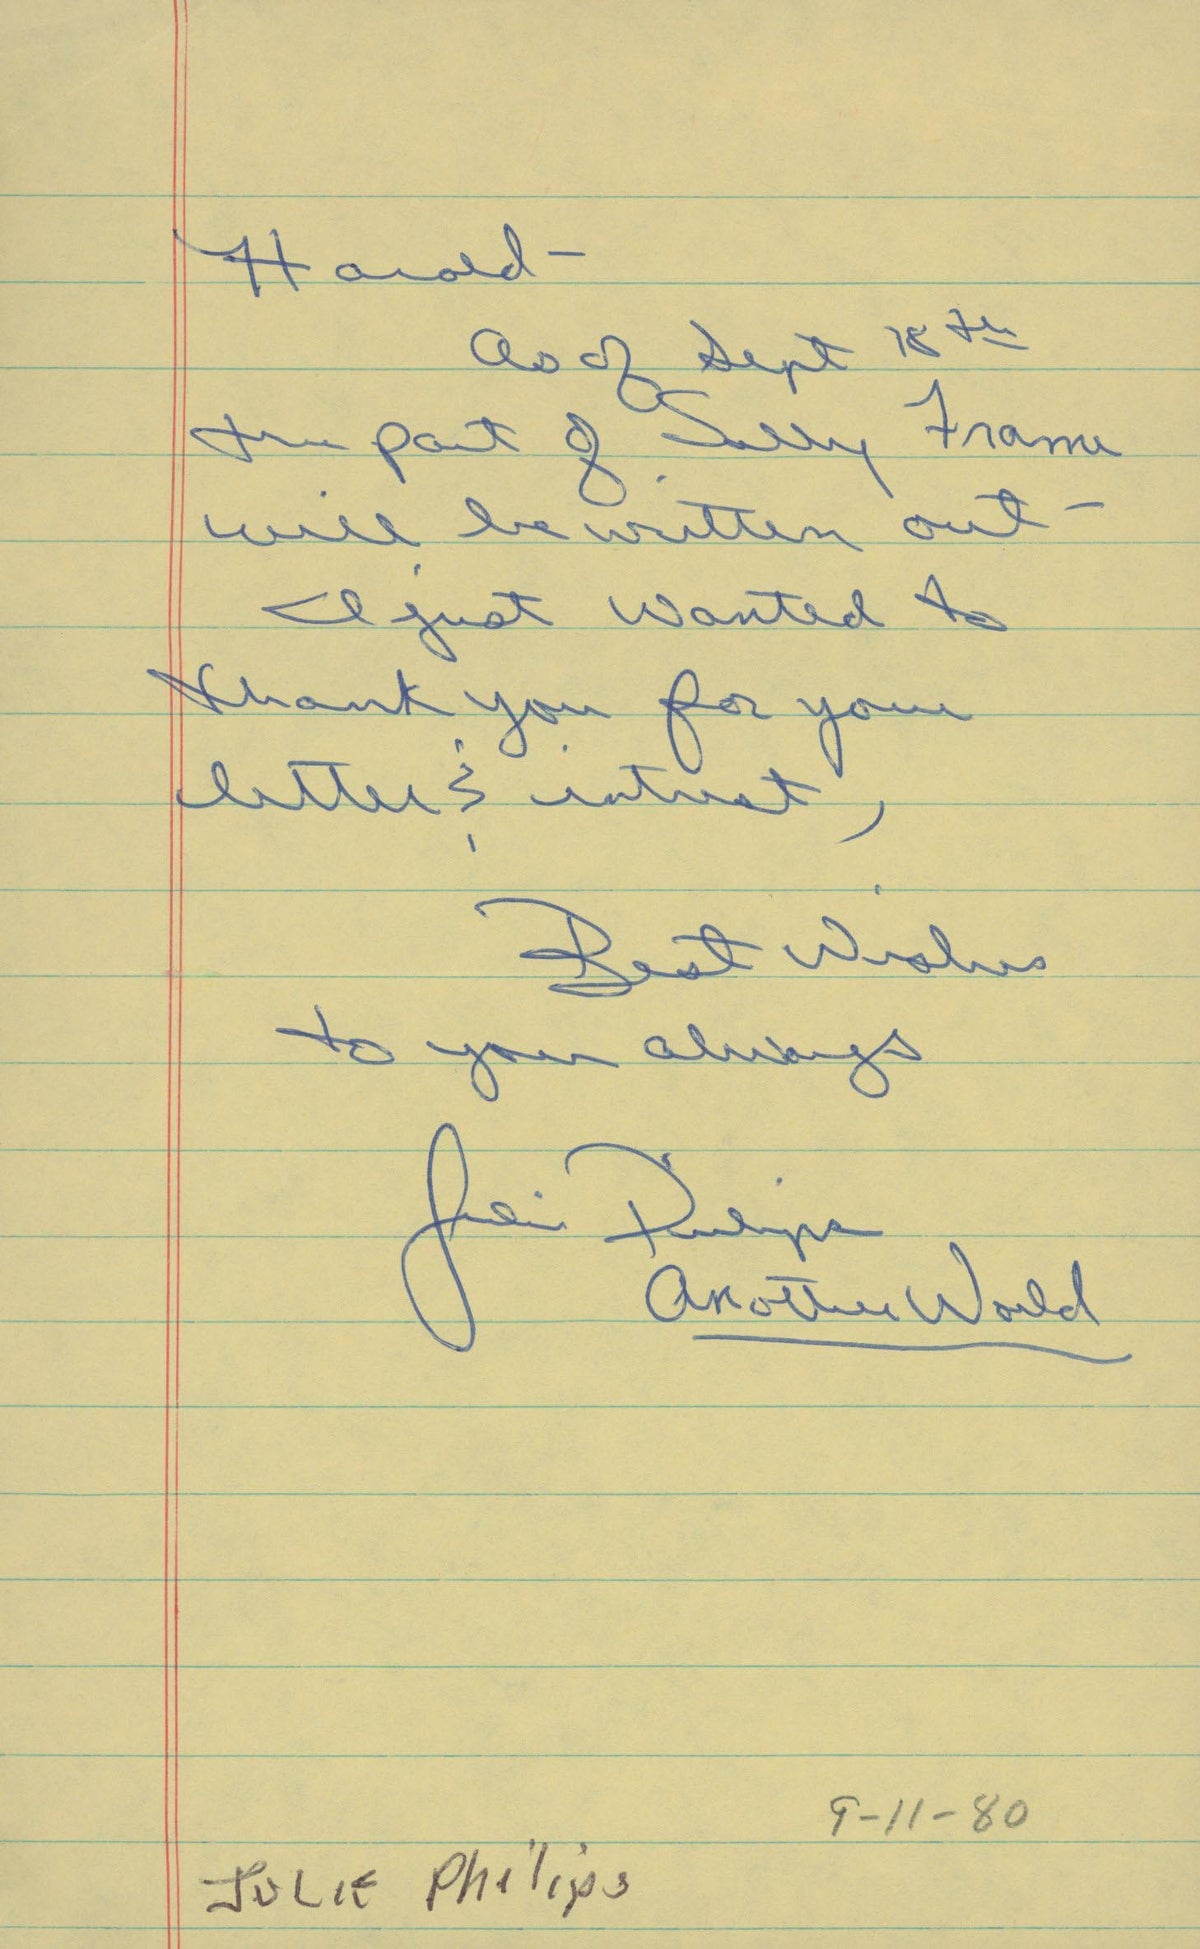 Harold-
As of Sept 18th
the part of Sally Frame
will be written out-
I just wanted to
thank you for your
letter & interest,
Best Wishes
to you always
Julie Philips
Another World
9-11-80
JULIE Philips